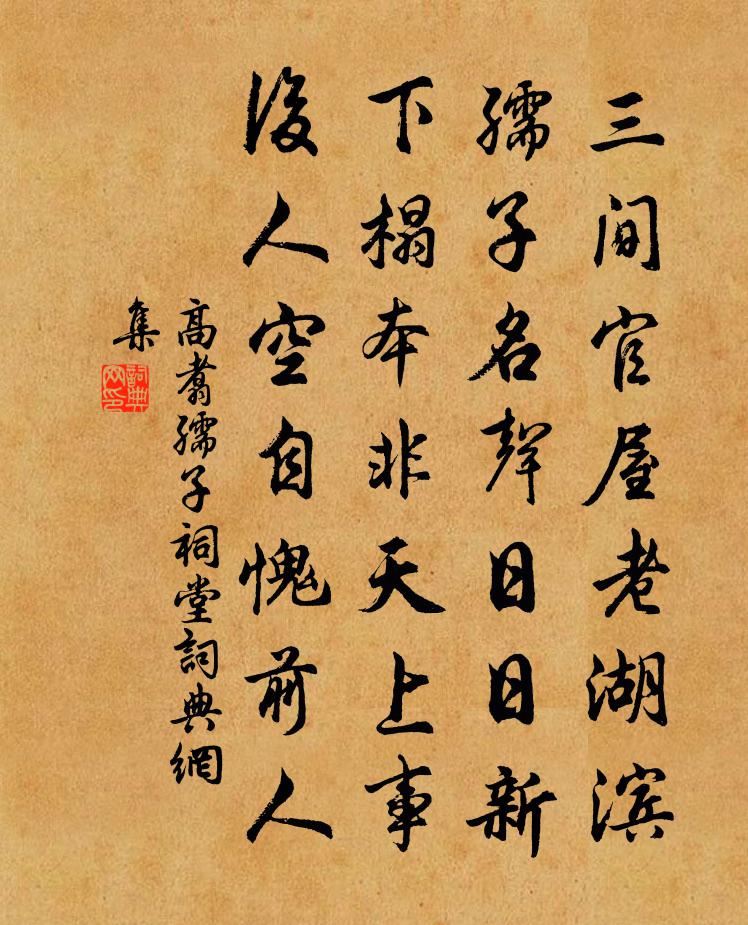 三間官屋老湖滨
孺子名聲日日新
下榻本非天上事
後人空自愧前人
高翥孺子祠堂詞典網
集
詞典
网印